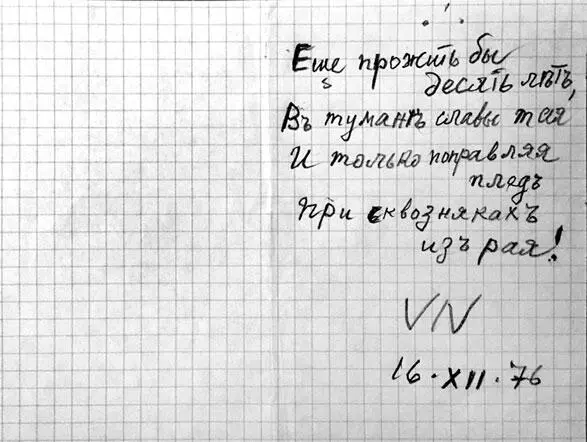 Еще прожить бы
десять лѣтъ,
Въ туманѣ славы тая
И только поправляя
пледъ
При сквознякахъ
изъ рая!
VN
16.XII.76